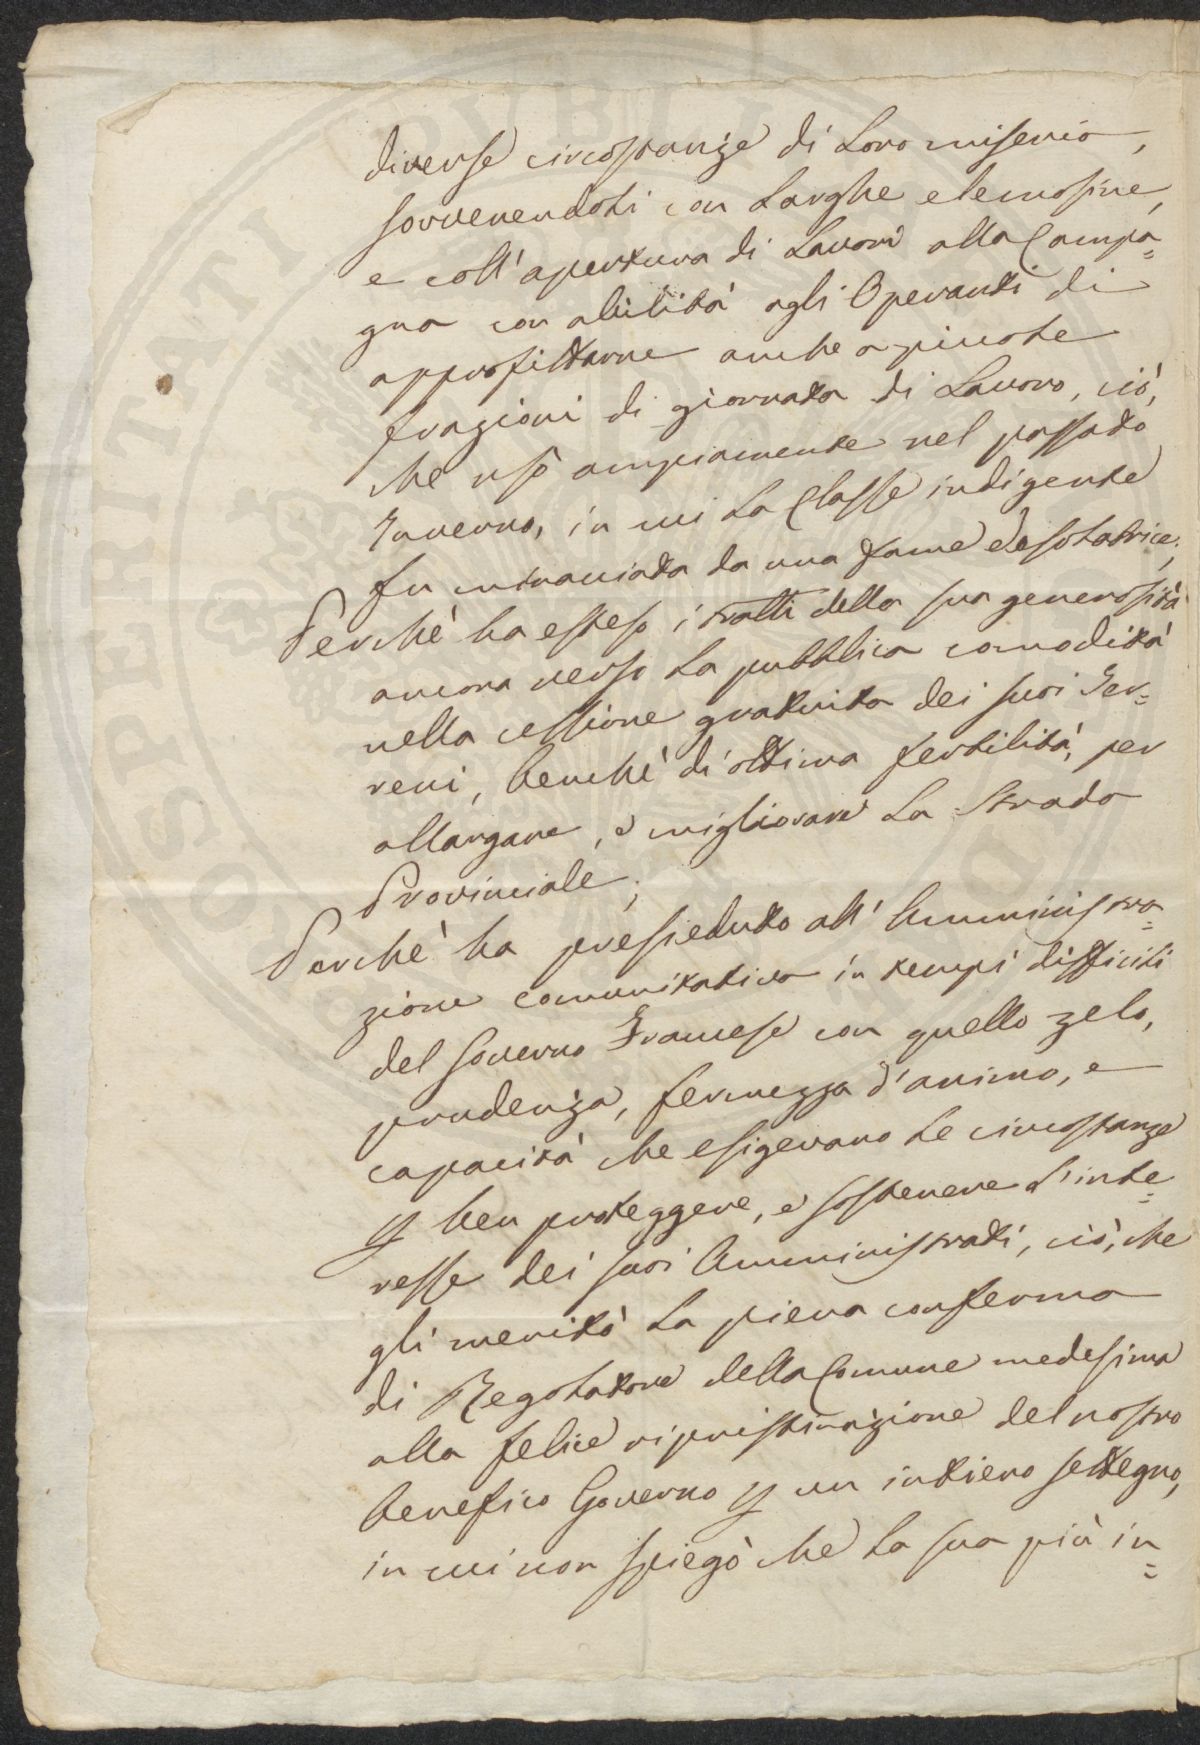 diverse circostanze di Loro miseria,
sovvenendoli con Larghe elemosine,
e coll'apertura di Lavori alla Campa=
gna con abilità agli Operanti di
approfittarne anche a picciole
frazioni di giornata di Lavoro, ciò,
che usò ampiamente nel passato
Inverno, in cui La Classe indigente
fu minacciata da una fame desolatrice;
Perchè ha esteso i tratti della sua generosità
ancora verso La pubblica comodità
nella cessione gratuita dei suoi Ter=
reni, benchè di ottima fertilità, per
allargare, e migliorare La Strada
Provinciale;
Perchè ha presieduto all'Amministra=
zione comunitativa in tempi difficili
del Governo Francese con quello zelo,
prudenza, fermezza d'animo, e
capacità che esigevano Le circostanze
p ben proteggere, e sostenere L'inte=
resse dei suoi Amministrati, ciò, che
gli meritò La piena conferma
di Regolatore della Comune medesima
alla felice ripristinazione del nostro
benefico Governo p un intiero settegno,
in cui non spiegò che La sua più in=
OSPITATI PUBLI